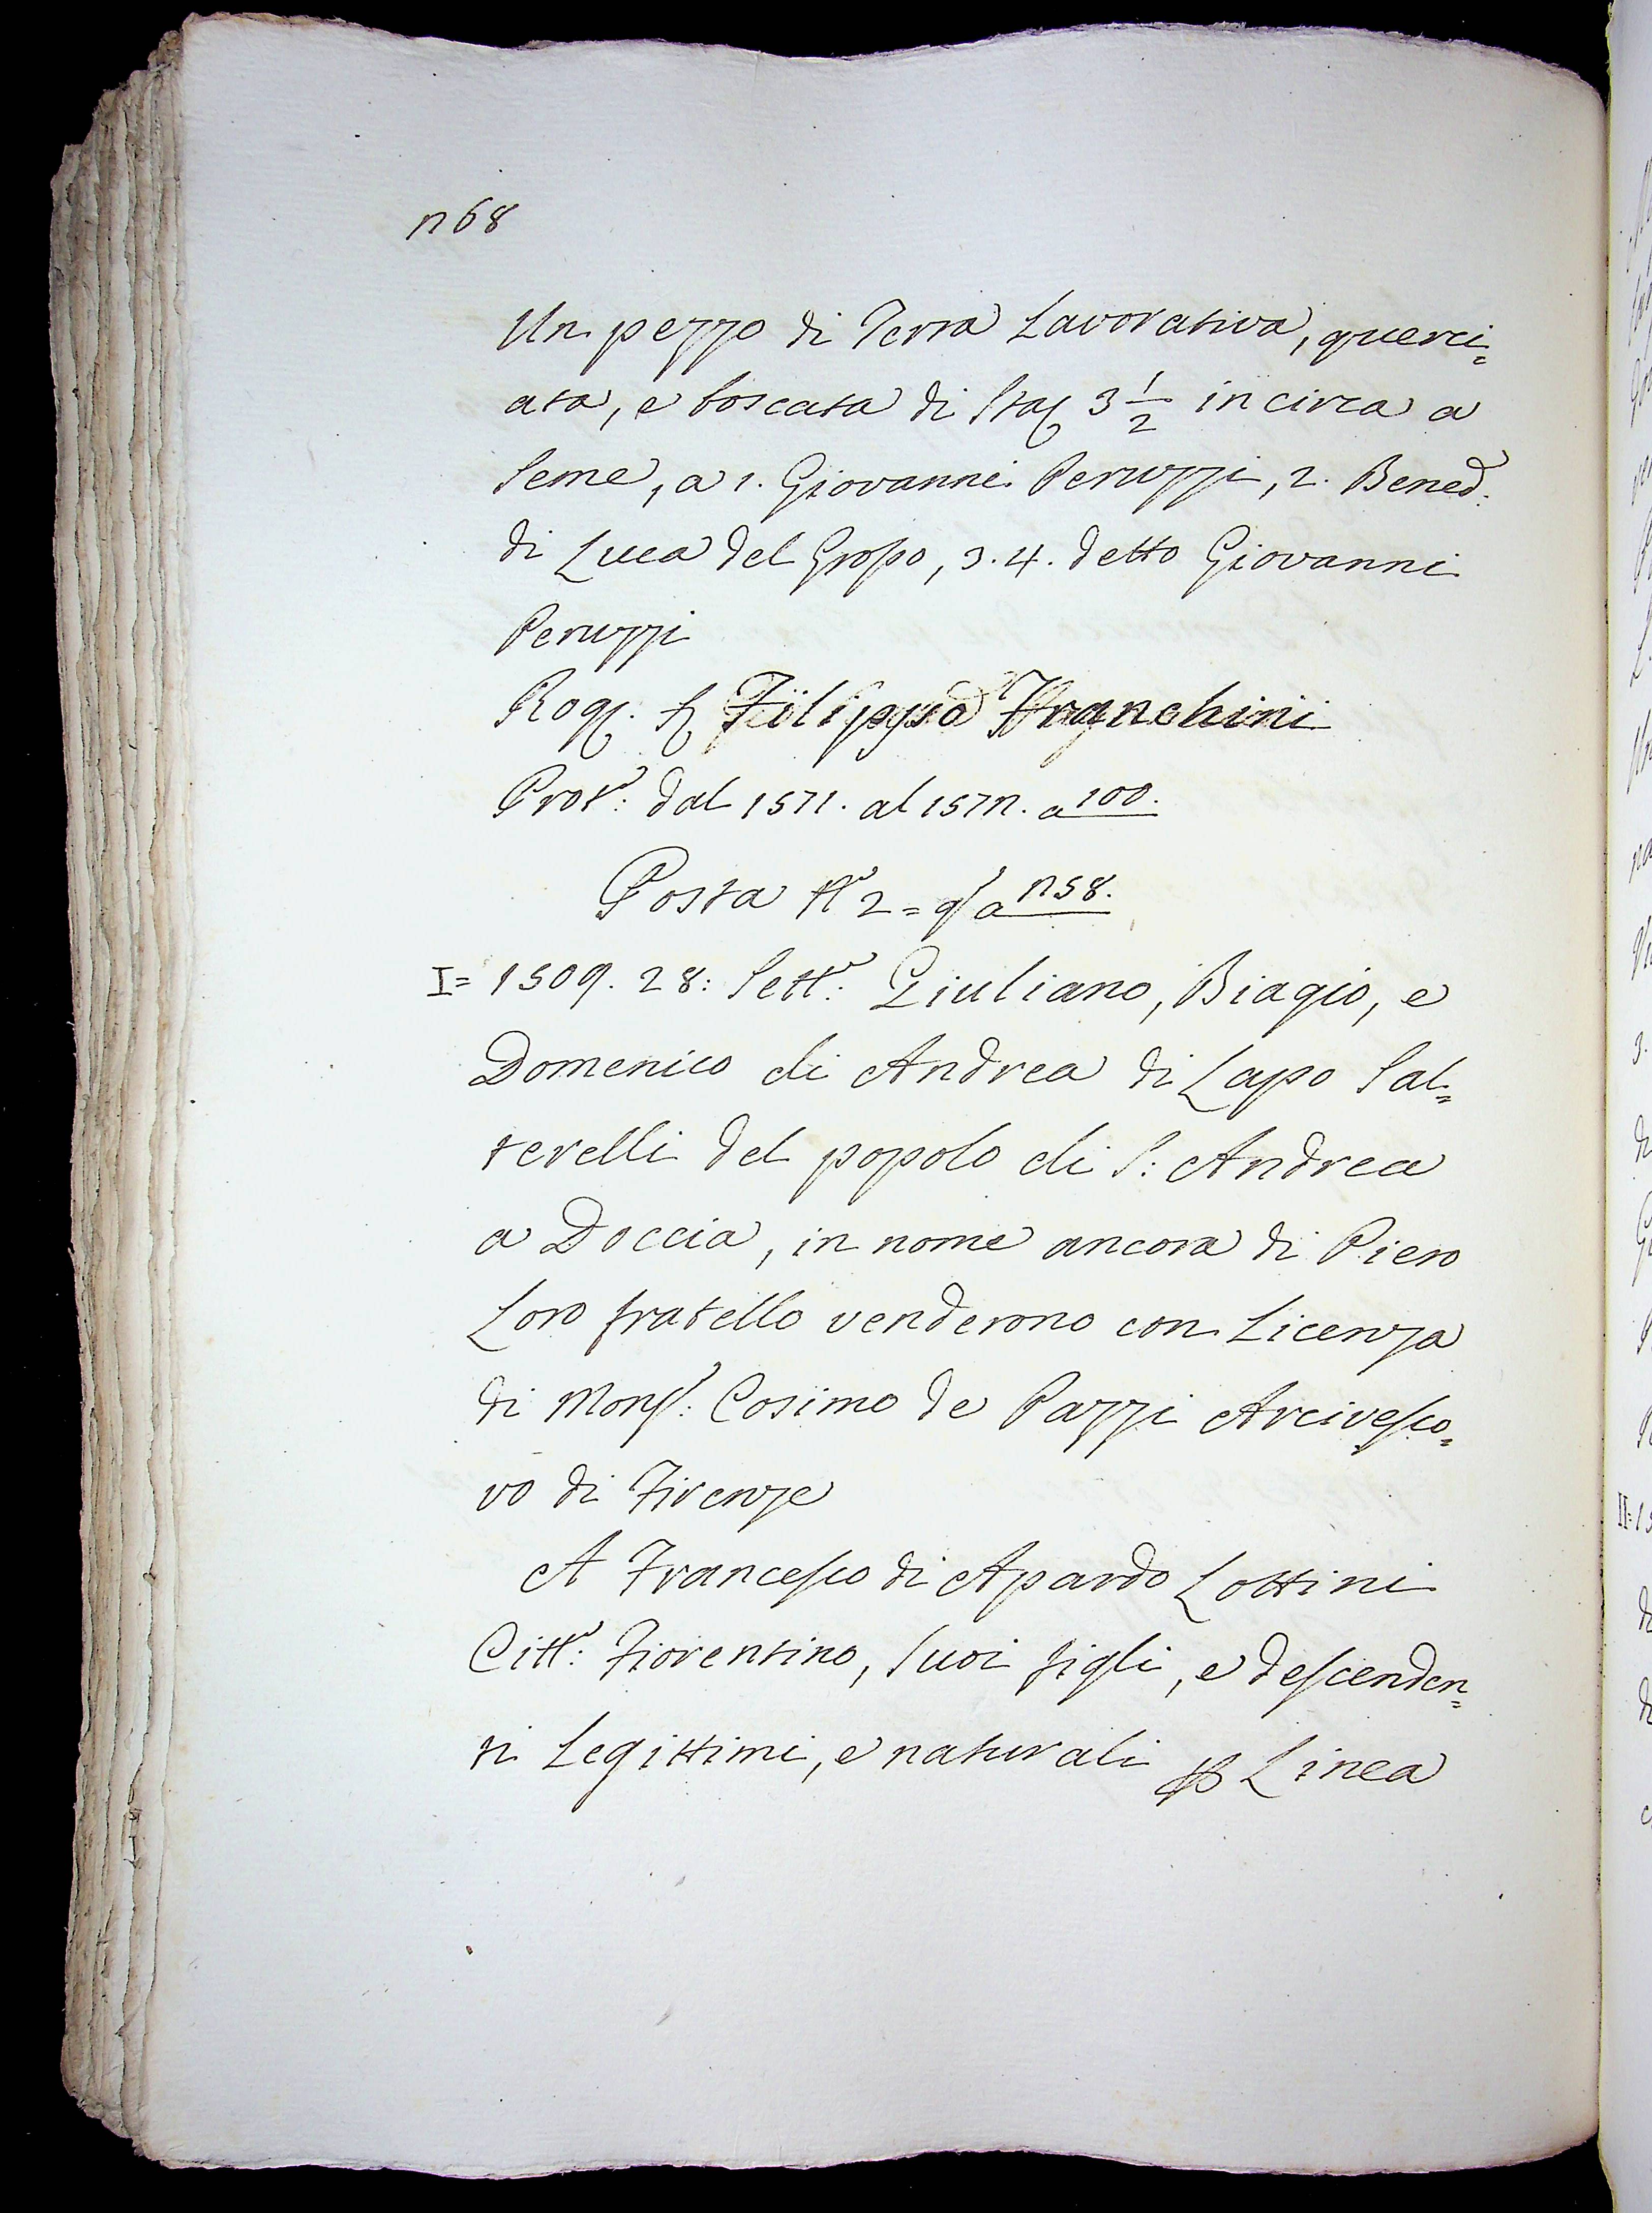 768
Un pezzo di Terra Lavorativa, querci=
ata, e boscata di Sta. 3 1/2 in circa a
Seme, a 1. Giovanni Peruzzi, 2. Bened.
di Luca del Grosso, 3. 4. detto Giovanni
Peruzzi
Rog. Filippo Franchini
Prot.: dal 1571. al 1577. a 100.
Posta N 2 = a 758.
I = 1509. 28: Sett.: Giuliano, Biagio, e
Domenico di Andrea di Lapo Sal=
terelli del popolo di S: Andrea
a Doccia, in nome ancora di Piero
Loro fratello venderono con Licenza
di Mons.: Cosimo de Pazzi Arcivesco=
vo di Firenze
A Francesco di Apardo Lottini
Citt.: Fiorentino, Suoi figli, e descenden=
ti Legittimi, e naturali p Linea